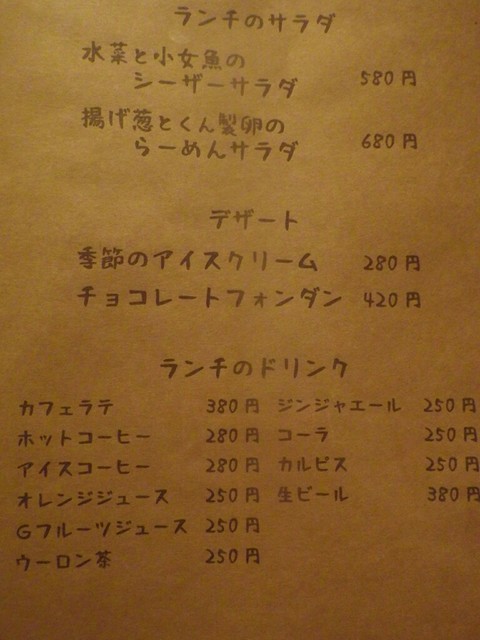 ランチのサラダ
水菜と小女魚の
シーザーサラダ 580円
揚げ葱とくん製卵の
らーめんサラダ 680円
デザート
季節のアイスクリーム 280円
チョコレートフォンダン 420円
ランチのドリンク
カフェラテ 380円 ジンジャエール 250円
ホットコーヒー 280円 コーラ 250円
アイスコーヒー 280円 カルピス 250円
オレンジジュース 250円 生ビール 380円
Gフルーツジュース 250円
ウーロン茶 250円